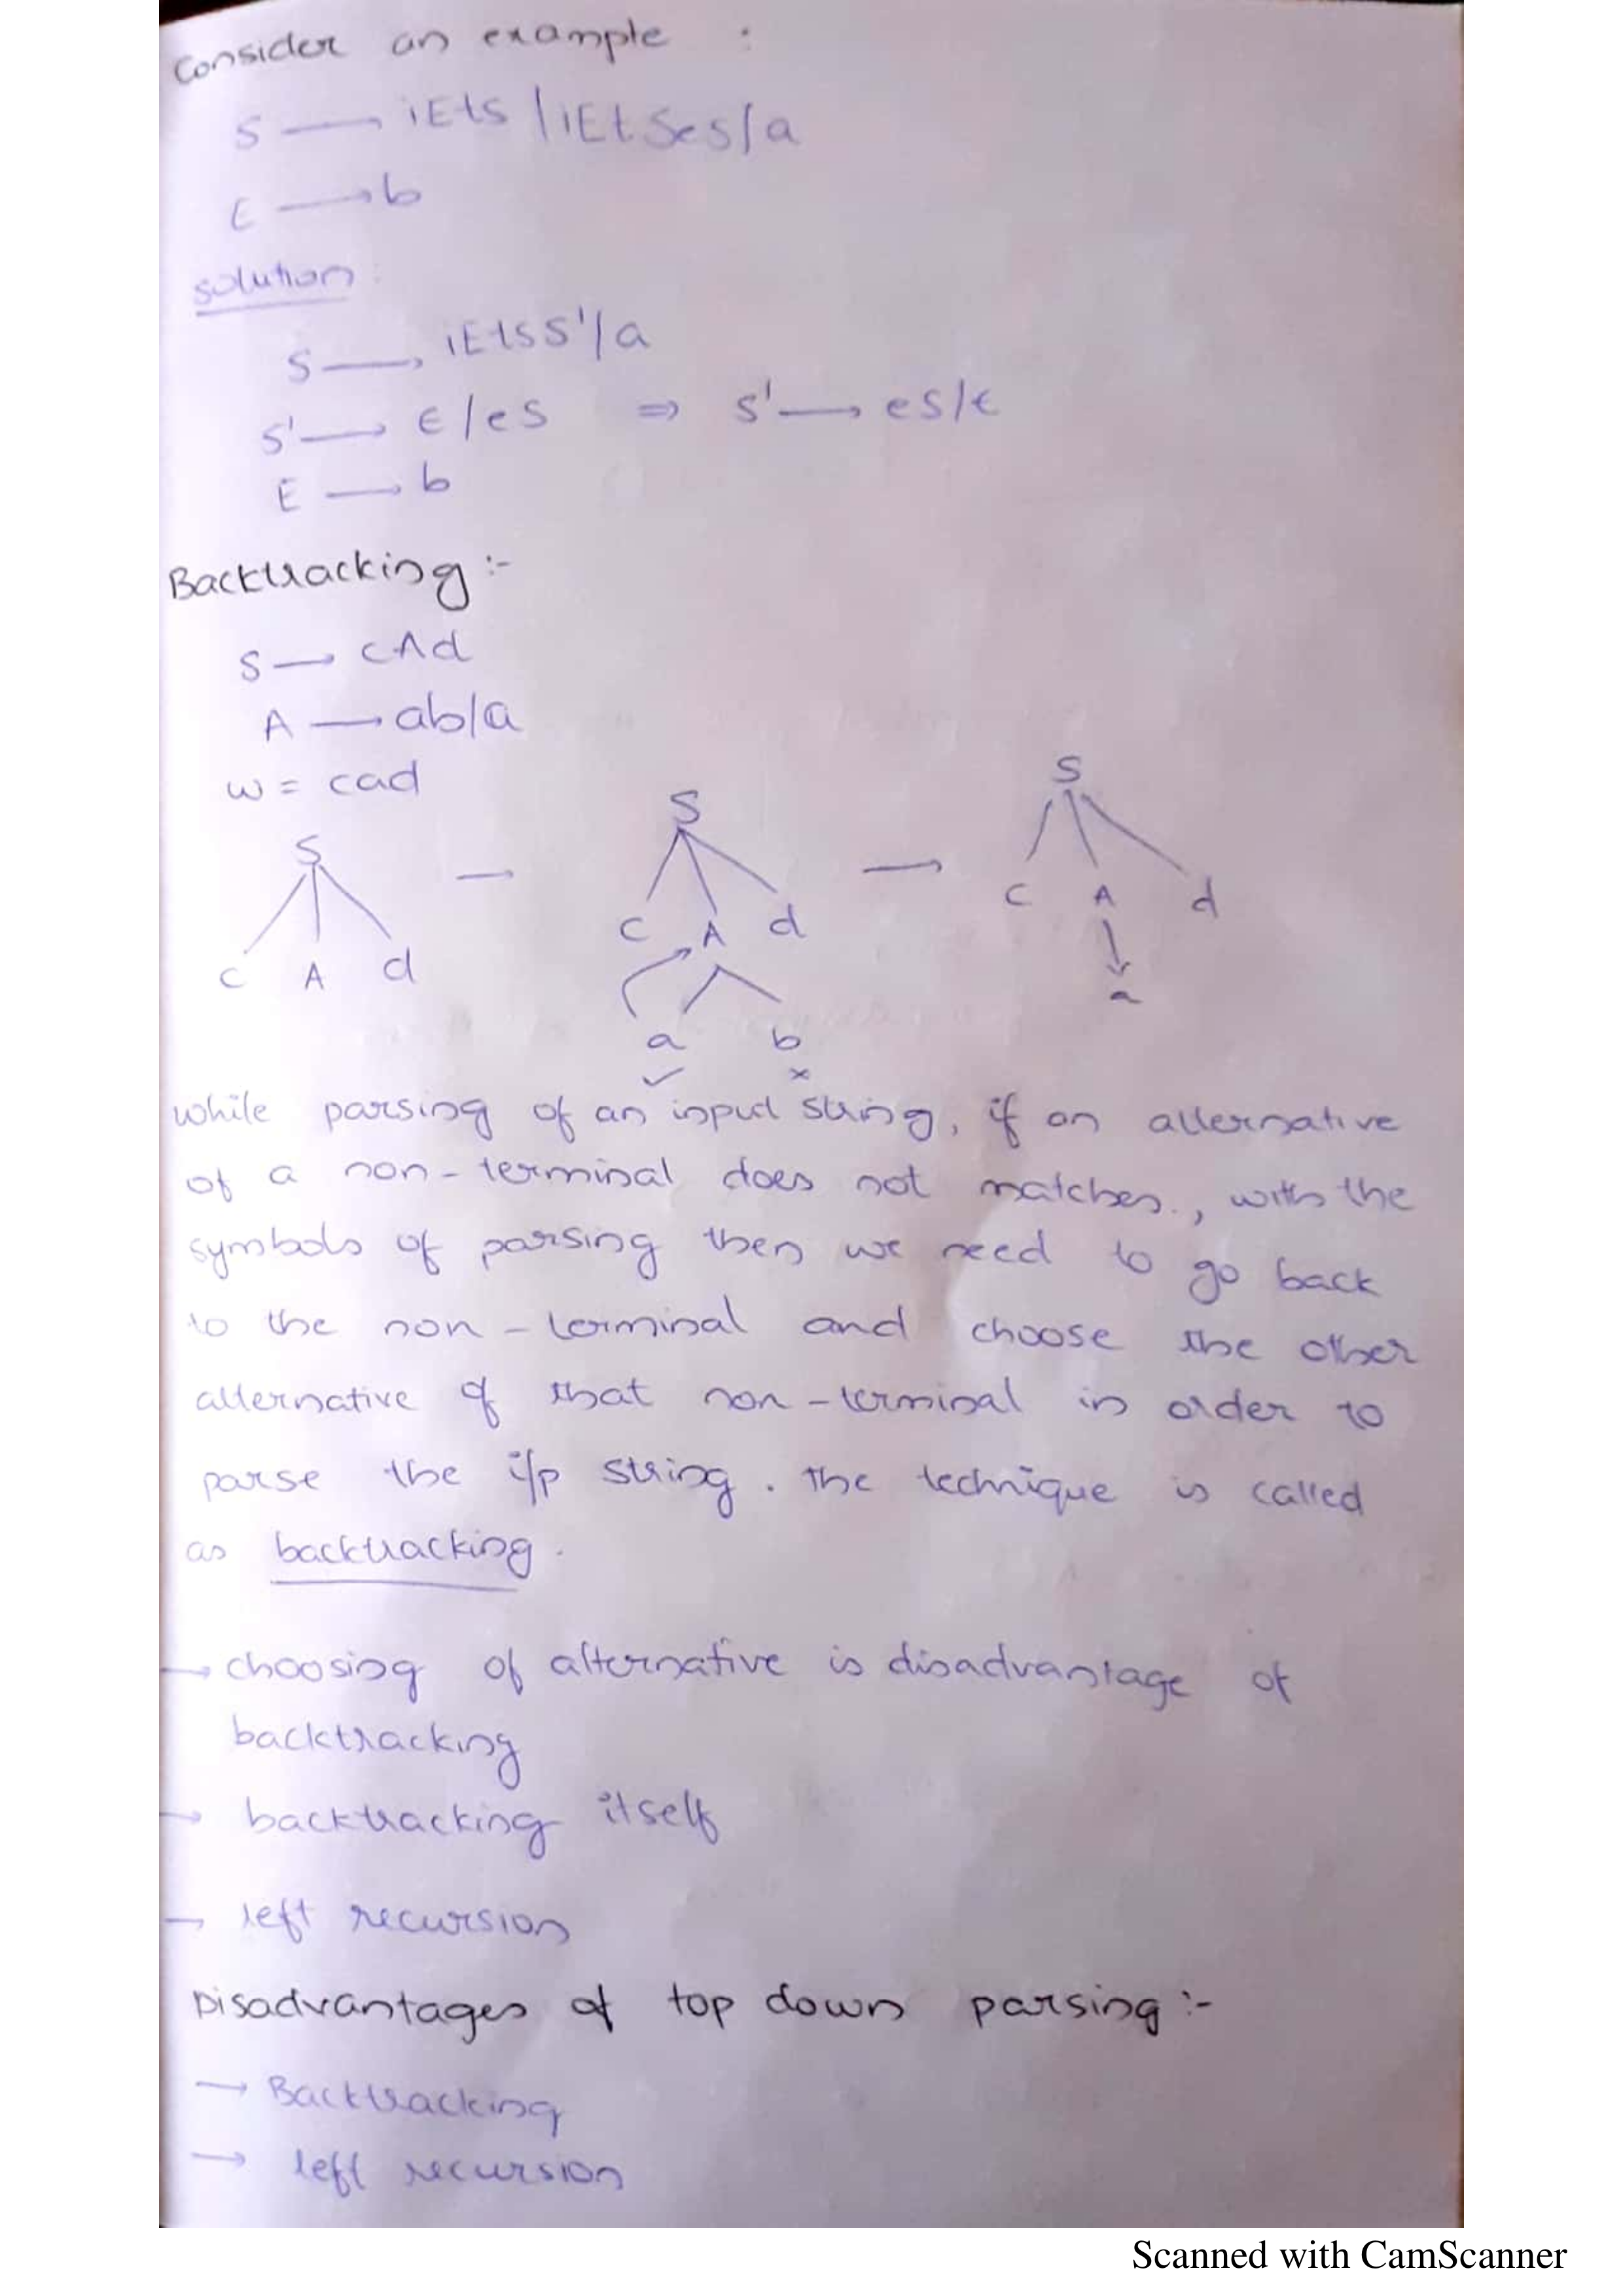 Consider an example :
S → iEtS / iEtSeS / a
E → b
solution :
S → iEtSS' / a
S' → ϵ / eS ⇒ S' → eS / ϵ
E → b
Backtracking :-
S → cAd
A → ab / a
w = cad
S → S → S
c A d c A d c A d
a b a
✓ ×
while parsing of an input string, if an alternative
of a non-terminal does not matches, with the
symbols of parsing then we need to go back
to the non-terminal and choose the other
alternative of that non-terminal in order to
parse the i/p string. The technique is called
as backtracking.
→ choosing of alternative is disadvantage of
backtracking
→ backtracking itself
→ left recursion
Disadvantages of top down parsing :-
→ Backtracking
→ left recursion
Scanned with CamScanner